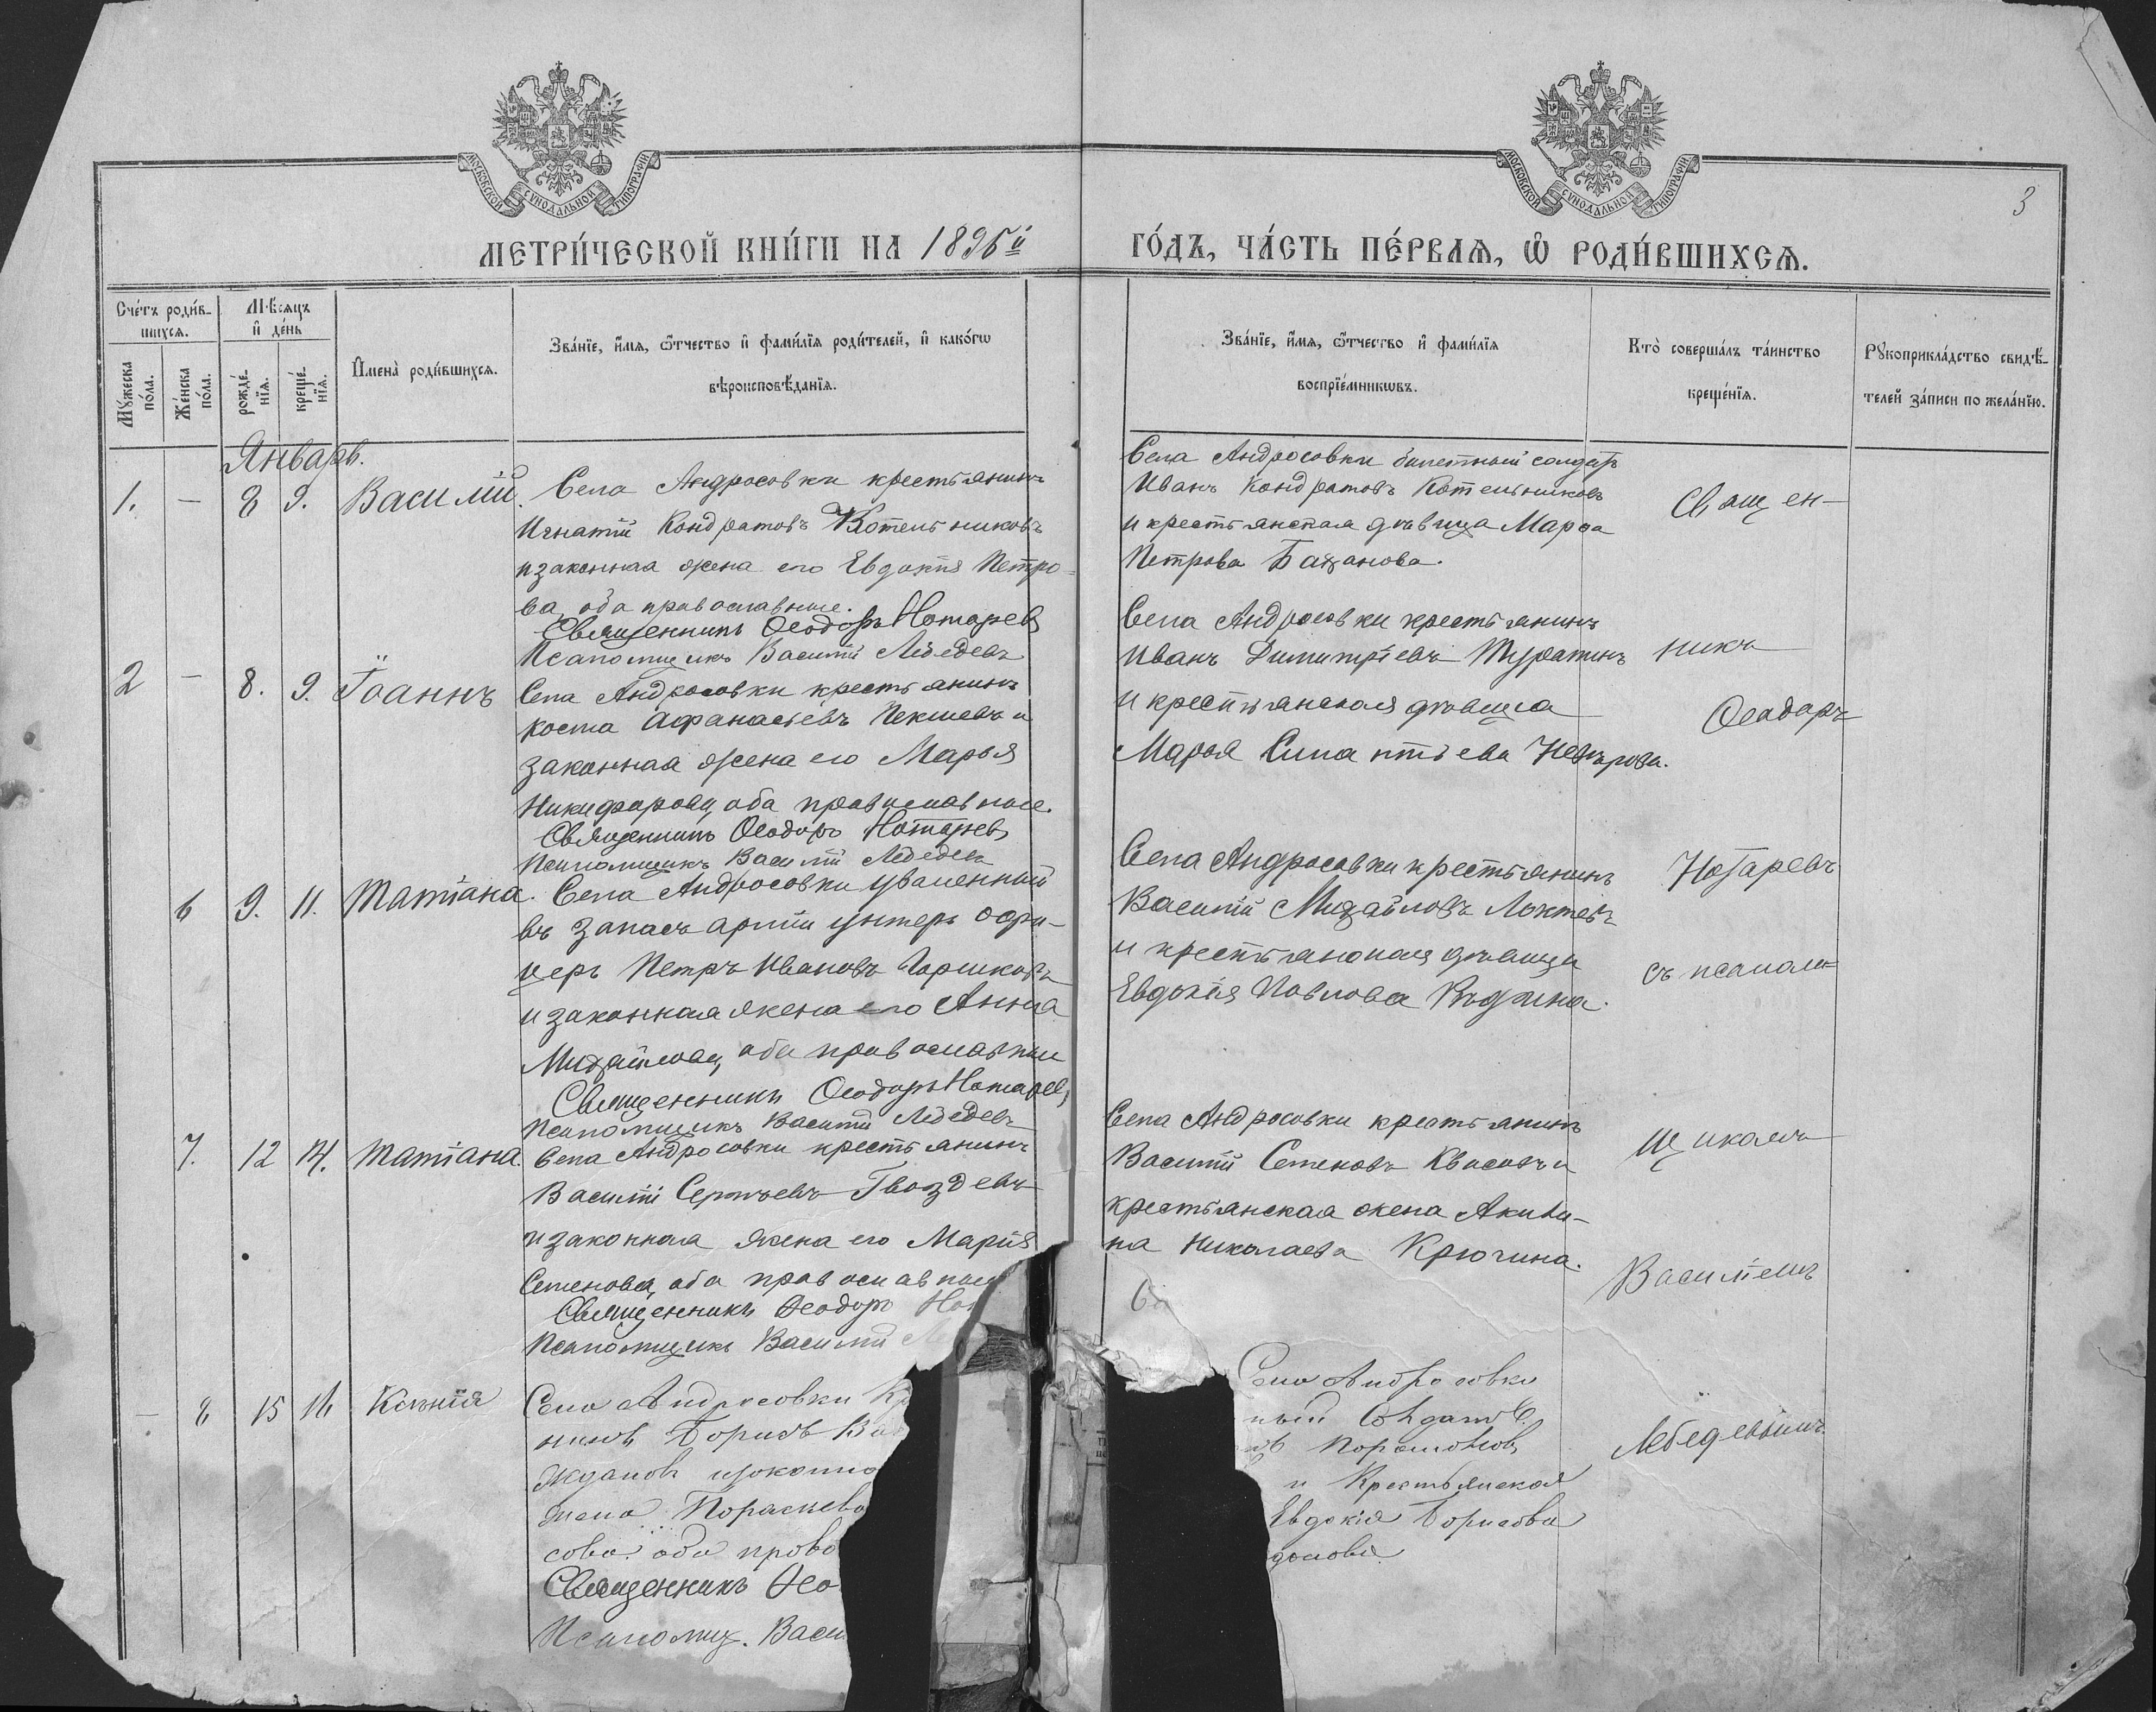 МОСКОВСКОЙ СѴНОДАЛЬНОЙ ТИПОГРАФІИ
МОСКОВСКОЙ СѴНОДАЛЬНОЙ ТИПОГРАФІИ
3
МЕТРИ́ЧЕСКОЙ КНИ́ГИ НА 1896й ГО́ДЪ, ЧА́СТЬ ПЕ́РВАѦ, Ѽ РОДИ́ВШИХСѦ.
Сче́тъ роди́в-
шихсѧ.
Мѣ́сѧцъ
и҆ де́нь
Мꙋ́жеска
по́ла.
Же́нска
по́ла.
рожде́-
нїѧ.
креще́-
нїѧ.
И҆мена̀ роди́вшихсѧ.
Зва́нїе, и҆́мѧ, ѻ҆́тчество и҆ фами́лїѧ роди́телей, и҆ како́гѡ
вѣроисповѣ́данїѧ.
Зва́нїе, и҆́мѧ, ѻ҆́тчество и҆ фами́лїѧ
воспрїе́мникѡвъ.
Кто̀ соверша́лъ та́инство
креще́нїѧ.
Рꙋкоприкла́дство свидѣ́-
телей за́писи по жела́нїю.
Январь.
1. — 8 9. Василій.
Села Андросовки крестьянинъ
Игнатій Кондратовъ Котельниковъ
и законная жена его Евдокія Петро-
ва, оба православные.
Священникъ Ѳеодоръ Нотаревъ
Псаломщикъ Василій Лебедевъ
Села Андросовки билетный солдатъ
Иванъ Кондратовъ Котельниковъ
и крестьянская дѣвица Марѳа
Петрова Бажанова.
2 — 8. 9. Іоаннъ
Села Андросовки крестьянинъ
Косма Афанасьевъ Пекшевъ и
законная жена его Марья
Никифорова, оба православные.
Священникъ Ѳеодоръ Нотаревъ
Псаломщикъ Василій Лебедевъ
Села Андросовки крестьянинъ
Иванъ Димитріевъ
и крестьянская дѣвица
Марья
6 9. 11. Татіана.
Села Андросовки уволенный
въ запасъ арміи унтеръ офи-
церъ Петръ Ивановъ Горшковъ
и законная жена его Анна
Михайлова, оба православные
Священникъ Ѳеодоръ Нотаревъ
Псаломщикъ Василій Лебедевъ
Села Андросовки крестьянинъ
Василій Михайловъ Локтевъ
и крестьянская дѣвица
Евдокія Павлова
7. 12 14. Татіана.
Села Андросовки крестьянинъ
Василій Сергѣевъ Гвоздевъ
и законная жена его Марія
Семенова, оба православные
Священникъ Ѳеодоръ Нот
Псаломщикъ Василій Л
Села Андросовки крестьянинъ
Василій Семеновъ Квасовъ и
крестьянская жена Акили-
на Николаева Крючина.
— 8 15 16 Ксенія
Села Андросовки Кр
нинъ Борисъ Ва
Ждановъ и законно
жена Порасьева
сова. оба право
Священникъ Ѳео
Псаломщ. Васи
Села Андросовки
ный Солдатъ
и Крестьянская
Евдокія Борисова
данова
Священ-
никъ
Ѳеодоръ
Нотаревъ
съ псалом-
щикомъ
Василіемъ
Лебедевымъ.